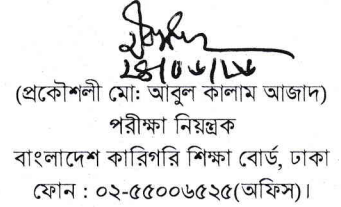 (প্রকৌশলী মো: আবুল কালাম আজাদ)
পরীক্ষা নিয়ন্ত্রক
বাংলাদেশ কারিগরি শিক্ষা বোর্ড, ঢাকা
ফোন : ০২-৫৫০০৬৫২৫(অফিস)।